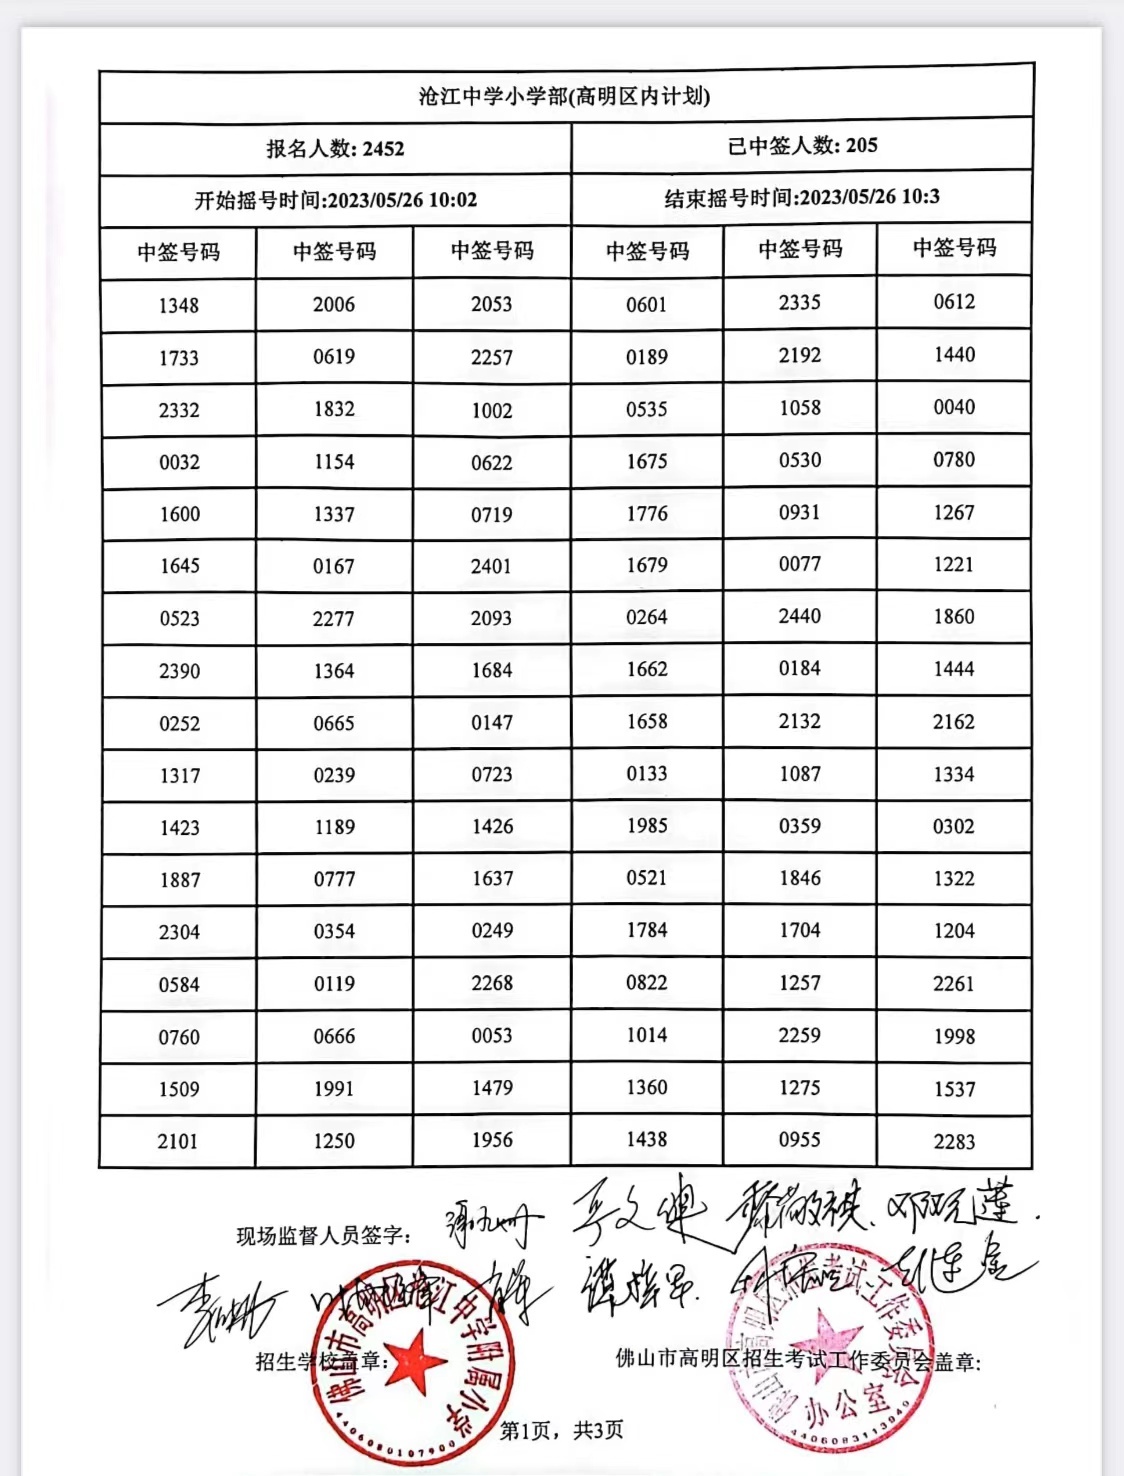 沧江中学小学部(高明区内计划)
报名人数: 2452 已中签人数: 205
开始摇号时间:2023/05/26 10:02 结束摇号时间:2023/05/26 10:3
中签号码 中签号码 中签号码 中签号码 中签号码 中签号码
1348 2006 2053 0601 2335 0612
1733 0619 2257 0189 2192 1440
2332 1832 1002 0535 1058 0040
0032 1154 0622 1675 0530 0780
1600 1337 0719 1776 0931 1267
1645 0167 2401 1679 0077 1221
0523 2277 2093 0264 2440 1860
2390 1364 1684 1662 0184 1444
0252 0665 0147 1658 2132 2162
1317 0239 0723 0133 1087 1334
1423 1189 1426 1985 0359 0302
1887 0777 1637 0521 1846 1322
2304 0354 0249 1784 1704 1204
0584 0119 2268 0822 1257 2261
0760 0666 0053 1014 2259 1998
1509 1991 1479 1360 1275 1537
2101 1250 1956 1438 0955 2283
现场监督人员签字:
招生学校盖章: 佛山市高明区招生考试工作委员会盖章:
佛山市高明区沧江中学附属小学
4406080107900
佛山市高明区招生考试工作委员会
办公室
4406083113949
第1页，共3页